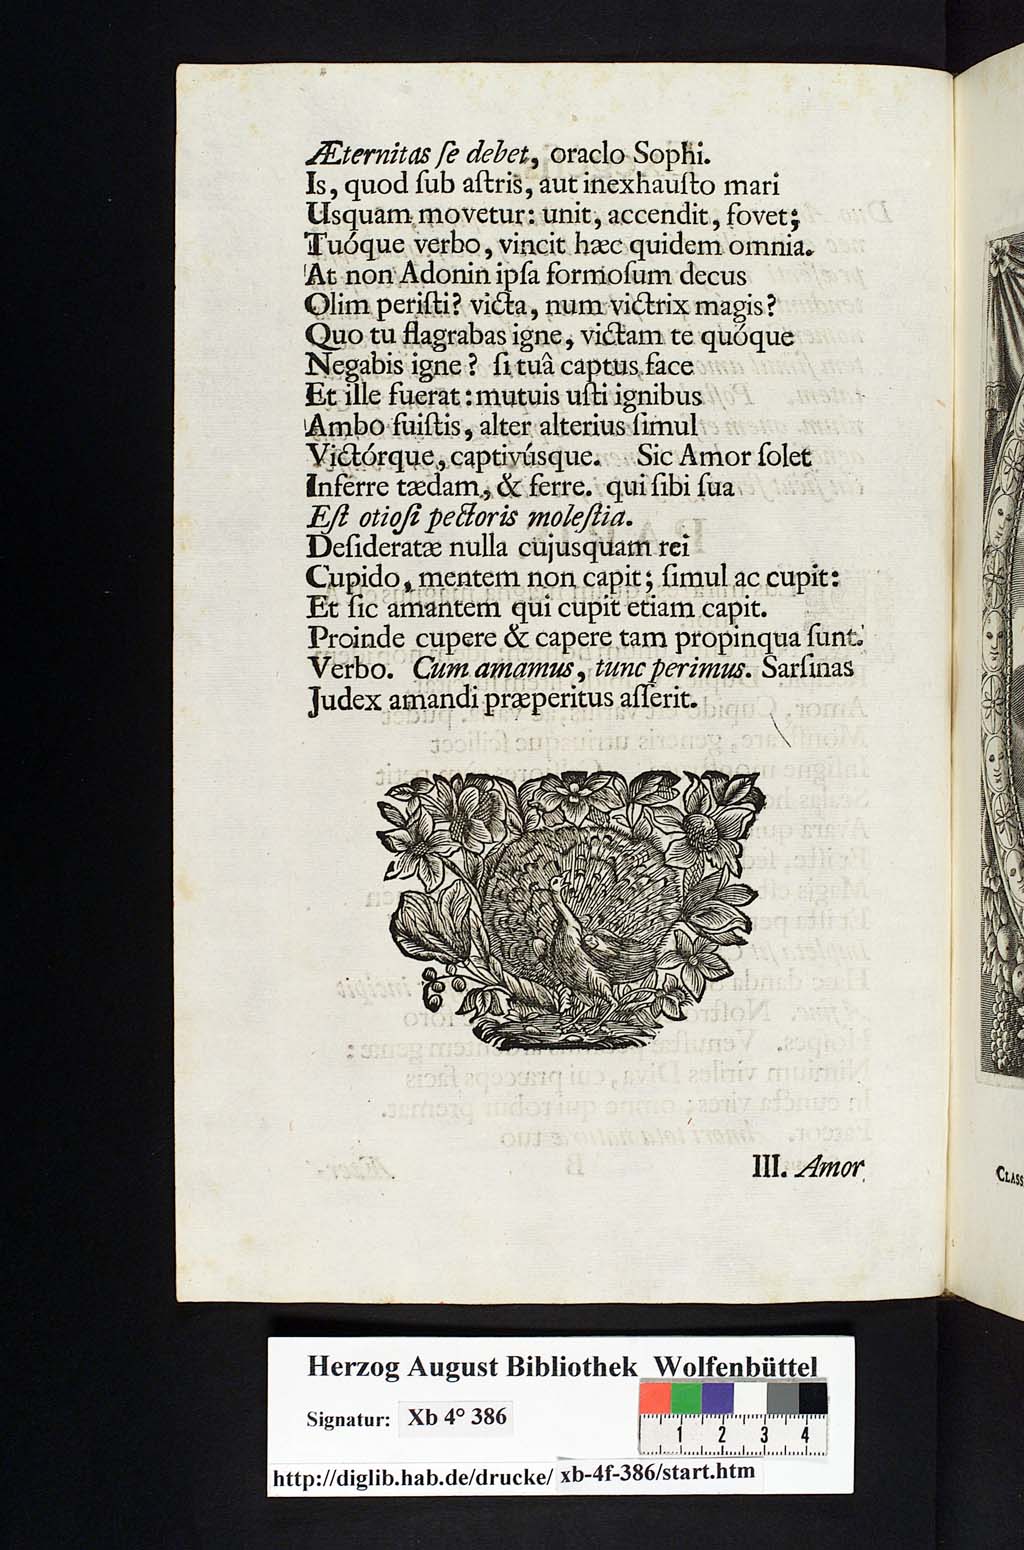 Æternitas ſe debet, oraclo Sophi.
Is, quod ſub aſtris, aut inexhauſto mari
Usquam movetur: unit, accendit, fovet;
Tuóque verbo, vincit hæc quidem omnia.
At non Adonin ipſa formoſum decus
Olim periſti? victa, num victrix magis?
Quo tu flagrabas igne, victam te quóque
Negabis igne? ſi tuâ captus face
Et ille fuerat: mutuis uſti ignibus
Ambo fuiſtis, alter alterius ſimul
Victórque, captivúsque. Sic Amor ſolet
Inferre tædam, & ferre. qui ſibi ſua
Eſt otioſi pectoris moleſtia.
Deſideratæ nulla cujusquam rei
Cupido, mentem non capit; ſimul ac cupit:
Et ſic amantem qui cupit etiam capit.
Proinde cupere & capere tam propinqua ſunt.
Verbo. Cum amamus, tunc perimus. Sarſinas
Judex amandi præperitus aſſerit.
III. Amor
CLASS
Herzog August Bibliothek Wolfenbüttel
Signatur: Xb 4° 386
1 2 3 4
http://diglib.hab.de/drucke/ xb-4f-386/start.htm